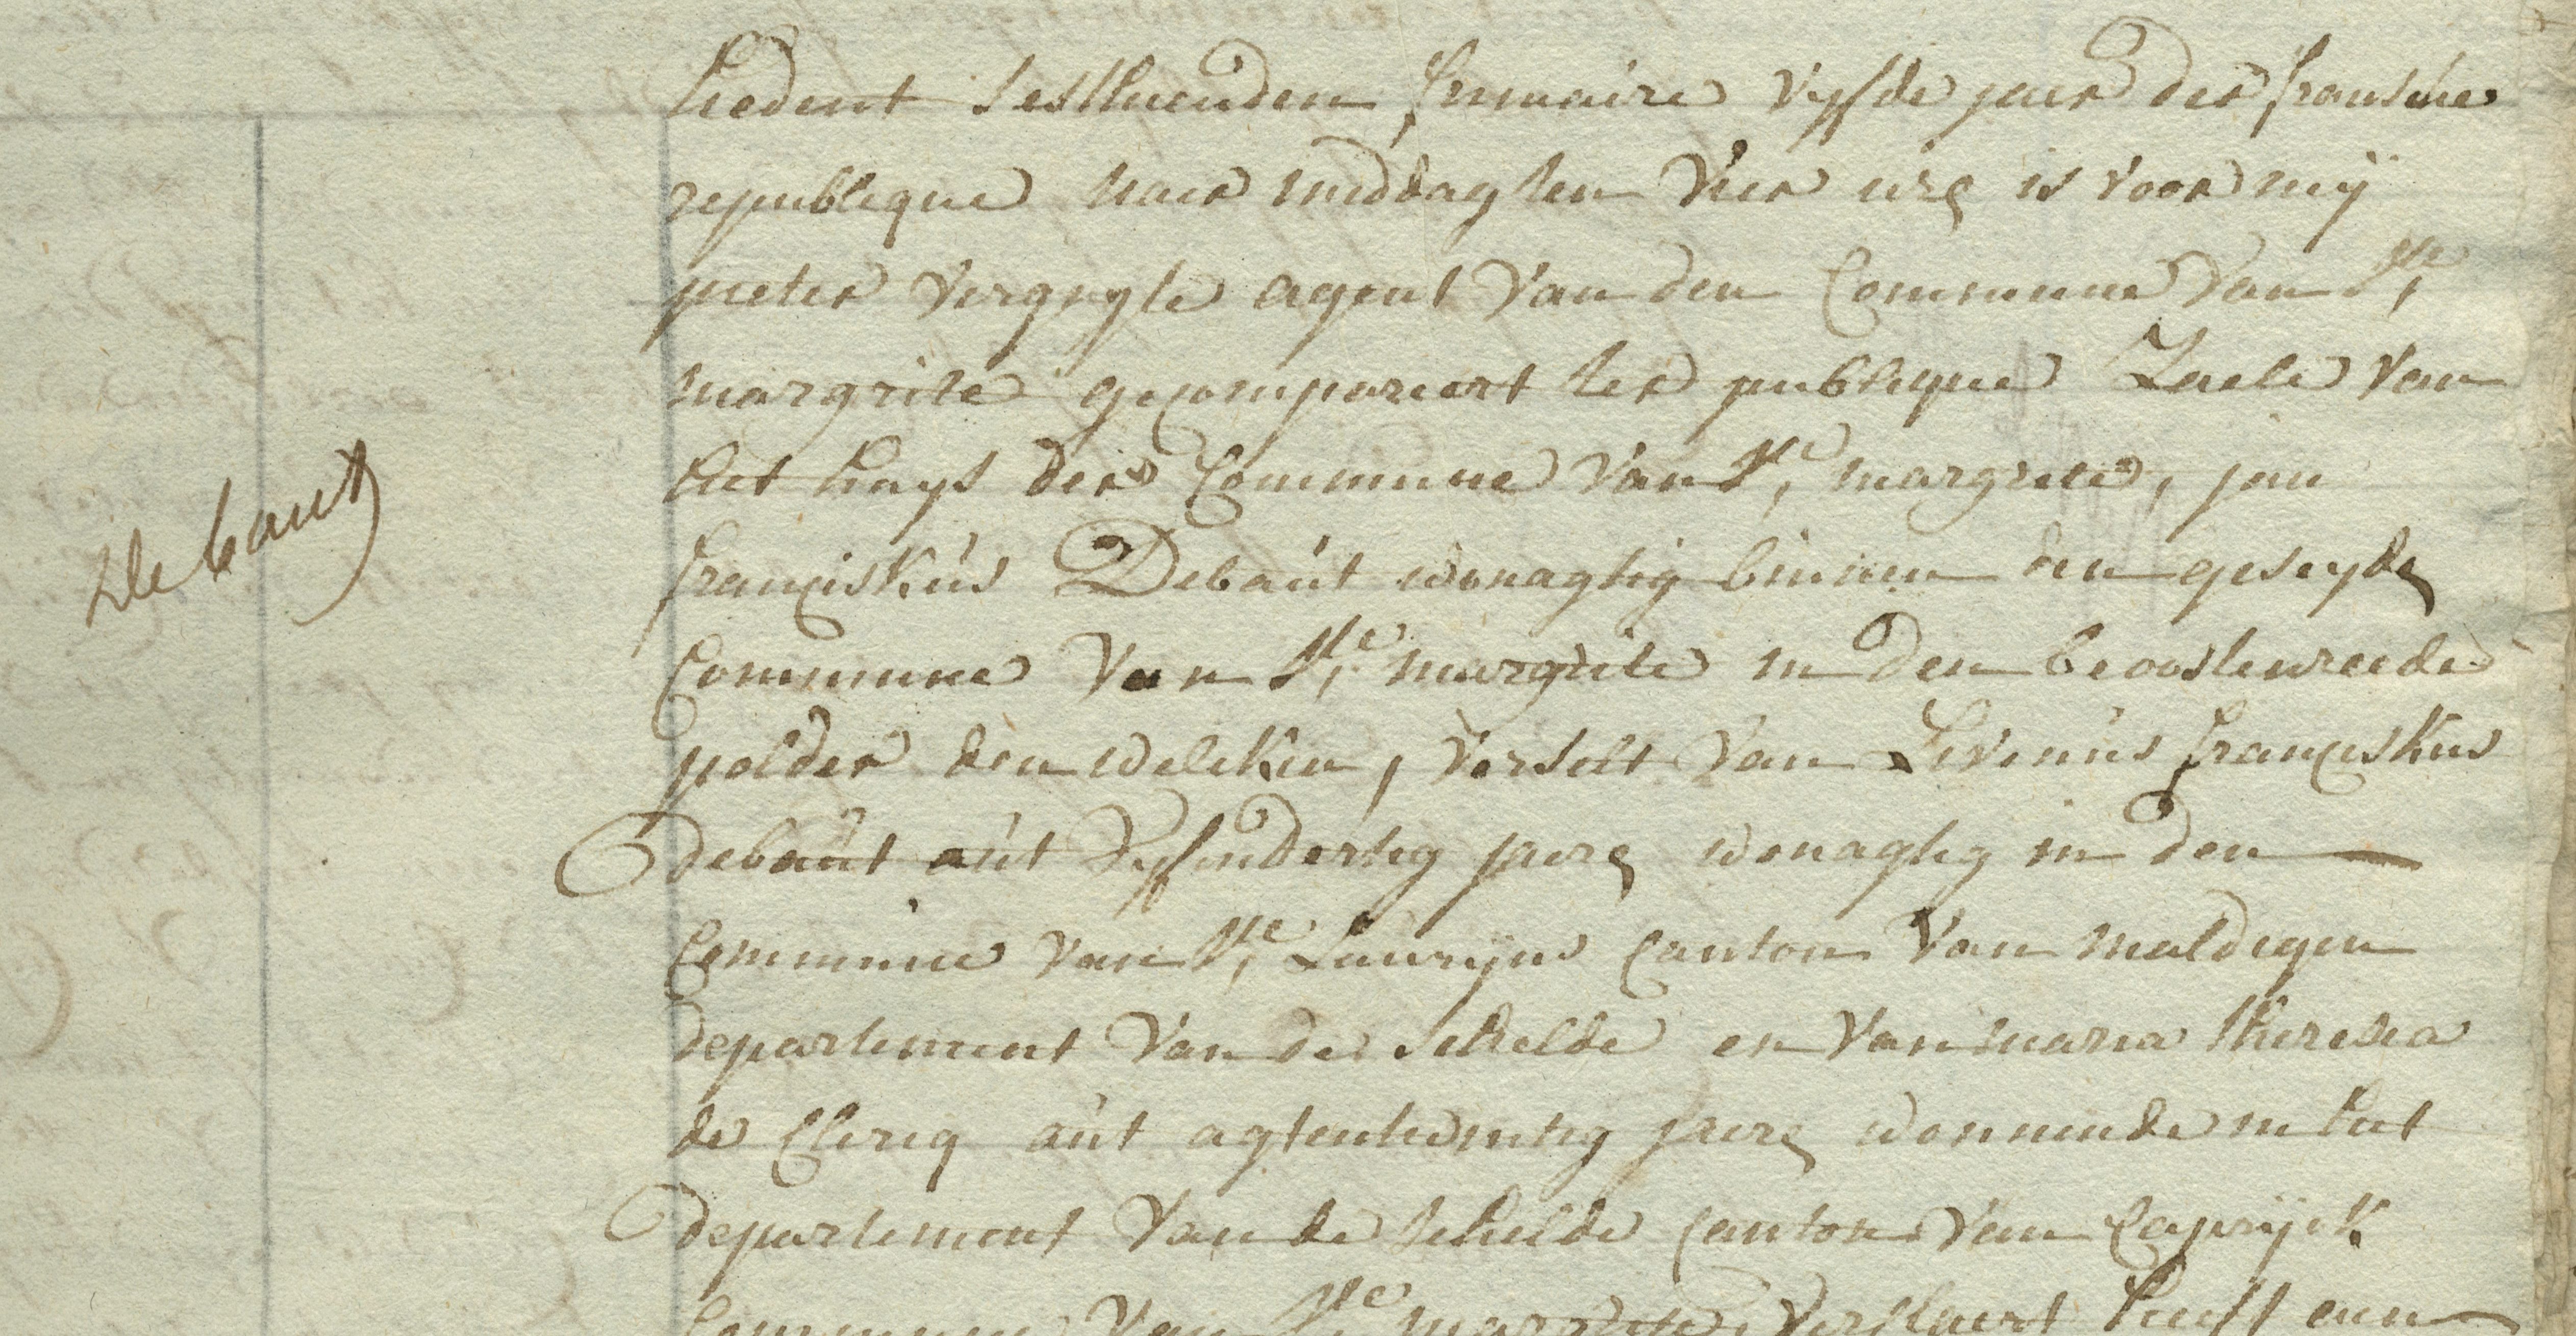 Debaut
hedent sesthienden frimaire vyfde jaer der fransche
republique naer middag ten vier ure is voor mÿ
pieter vergugle agent van den Commune van Ste
margrite gecompareert ter publique Zaele van
het huys der Commune van Ste margrite, jan
franciskus Debaut wonagtig binnen den geseyde
Commune van Ste margriete in den beoostenreede
polder den welcken, verselt van Livinus franciskus
debaut out vyfendertig jare wonagtig in den
Commune van Ste Laurÿns Canton van maldegem
departement van de schelde en van maria theresia
de Cleriq out agtentwintig jare wonnende in het
departement van de schelde Canton van Caprÿck
Commune van Ste margriete, verklaert heeft aen